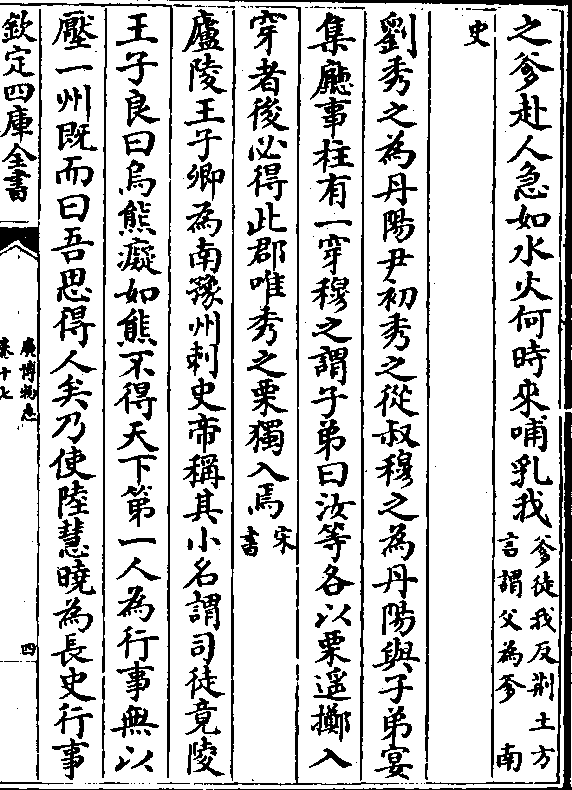 之爹赴人急如水火何時來哺乳我爹徒我反荆土方言謂父為爹 南
史
劉秀之為丹陽尹初秀之從叔穆之為丹陽與子弟宴
集廳事柱有一穿穆之謂子弟曰汝等各以栗遥擲入
穿者後必得此郡唯秀之栗獨入焉宋書
廬陵王子卿為南豫州刺史帝稱其小名謂司徒竟陵
王子良曰烏熊癡如熊不得天下第一人為行事無以
壓一州既而曰吾思得人矣乃使陸慧曉為長史行事
欽定四庫全書
廣博物志
卷十七
四